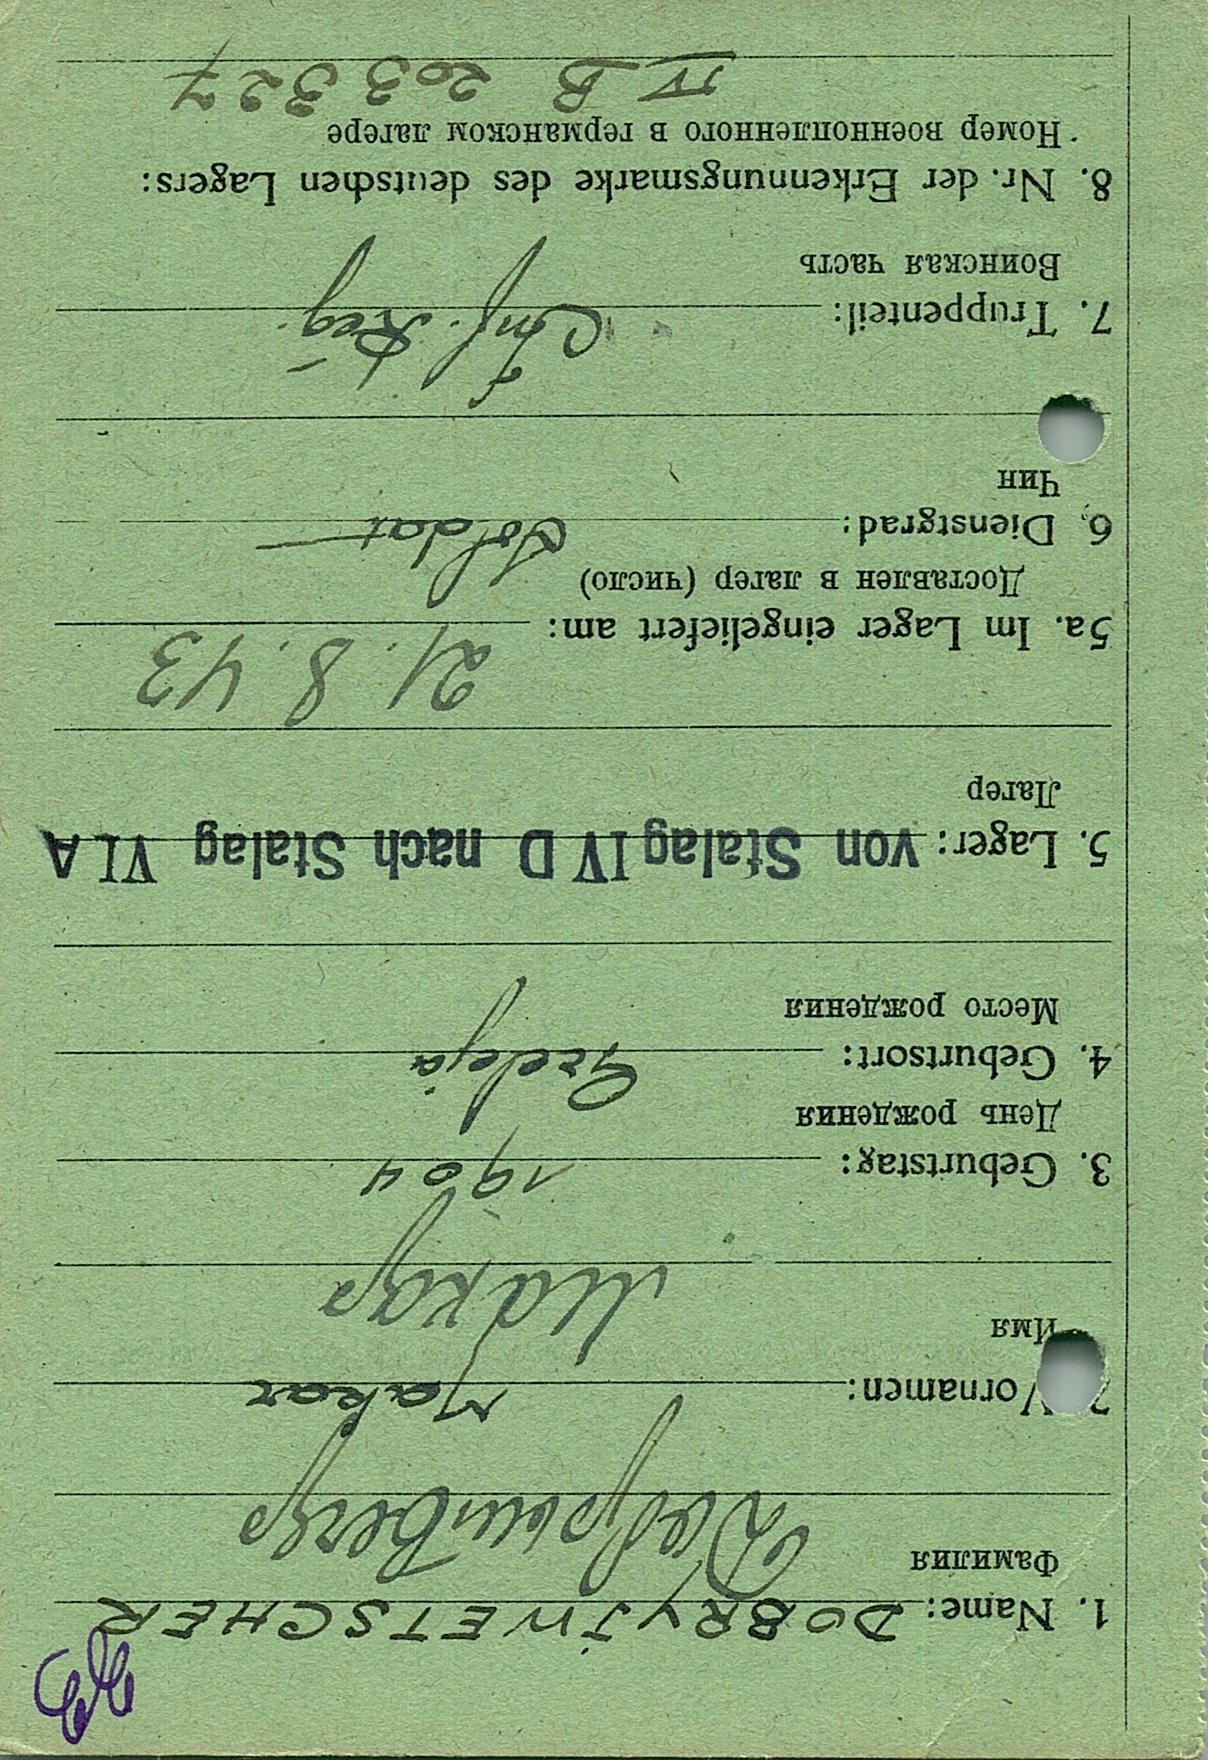 1. Name: DOBRYJWETSCHER
Фамилия
Vornamen: Makar
Имя
Макар
3. Geburtstag: 1904
День рождения
4. Geburtsort:
Место рождения
5. Lager: von Stalag IV D nach Stalag VI A
Лагер
5a. Im Lager eingeliefert am: 21. 8. 43
Доставлен в лагер (число)
6. Dienstgrad: Soldat
Чин
7. Truppenteil: Inf. Reg.
Воинская часть
8. Nr. der Erkennungsmarke des deutschen Lagers:
Номер военнопленного в германском лагере
IV B 203 327